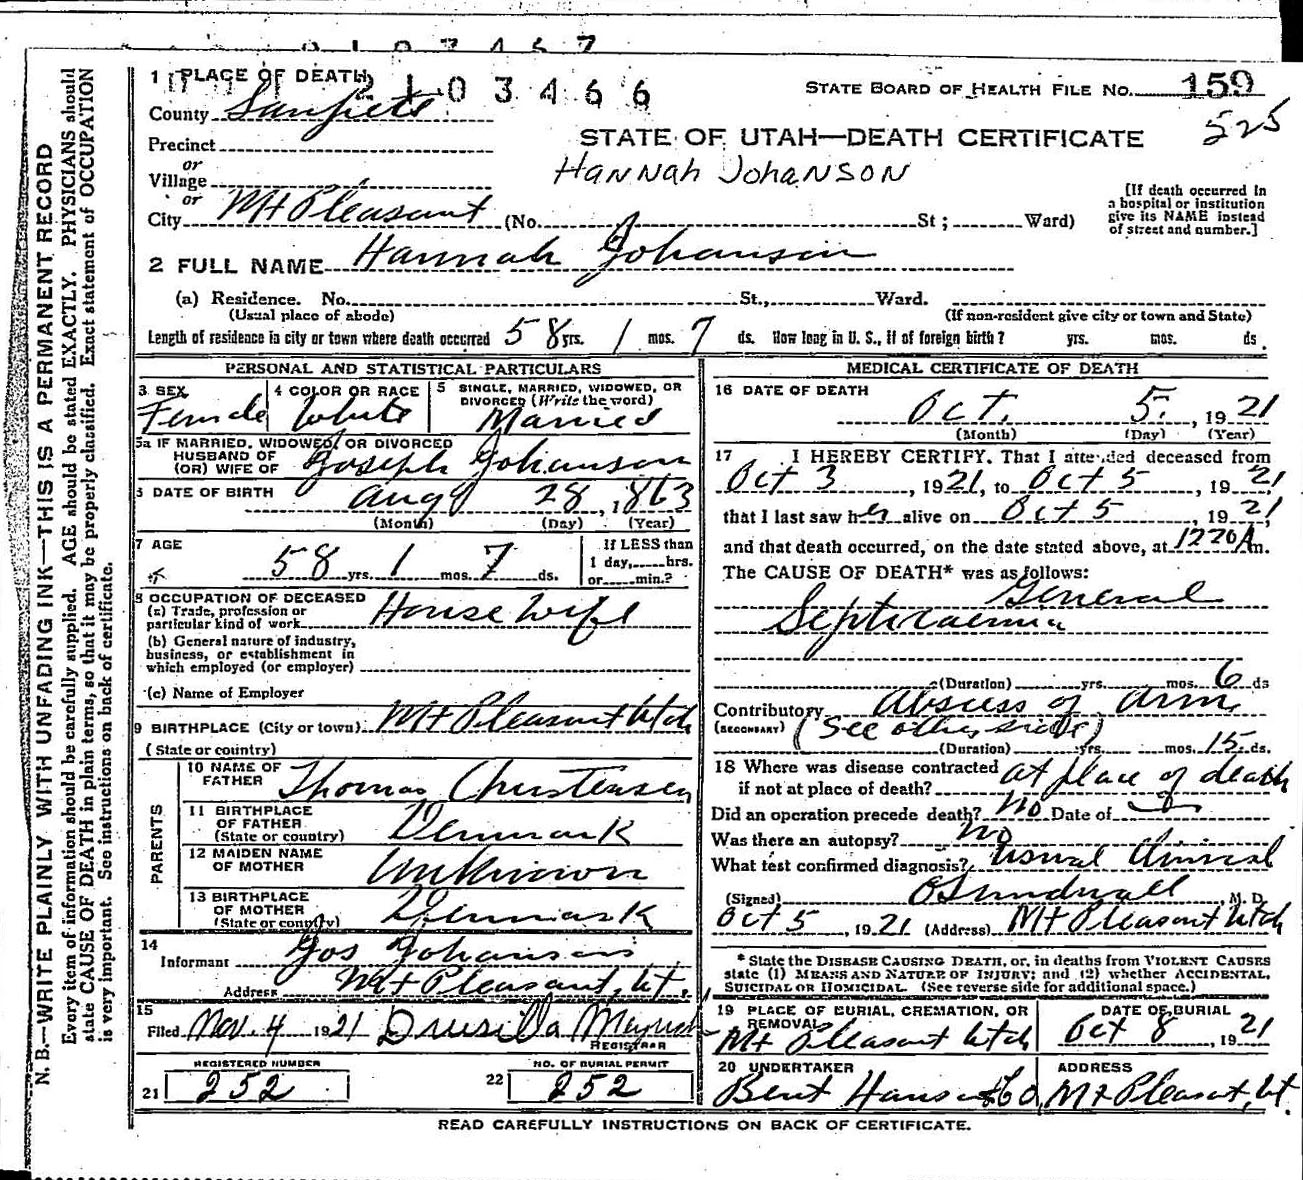 2 1 0 3 4 6 6
1 PLACE OF DEATH
STATE BOARD OF HEALTH FILE No. 159
525
County Sanpete
STATE OF UTAH—DEATH CERTIFICATE
Precinct
HANNAH JOHANSON
or
Village
or
City Mt Pleasant (No. St; Ward)
[If death occurred in
a hospital or institution
give its NAME instead
of street and number.]
2 FULL NAME Hannah Johanson
(a) Residence. No. St., Ward.
(Usual place of abode) (If non-resident give city or town and State)
Length of residence in city or town where death occurred 58 yrs. 1 mos. 7 ds. How long in U. S., if of foreign birth? yrs. mos. ds.
PERSONAL AND STATISTICAL PARTICULARS
3 SEX Female
4 COLOR OR RACE White
5 SINGLE, MARRIED, WIDOWED, OR
DIVORCED (Write the word)
Married
5a IF MARRIED, WIDOWED, OR DIVORCED
HUSBAND OF
(OR) WIFE OF Joseph Johanson
6 DATE OF BIRTH Aug 28, 1863
(Month) (Day) (Year)
7 AGE
58 yrs. 1 mos. 7 ds.
If LESS than
1 day, hrs.
or min.?
8 OCCUPATION OF DECEASED
(a) Trade, profession or
particular kind of work House Wife
(b) General nature of industry,
business, or establishment in
which employed (or employer)
(c) Name of Employer
9 BIRTHPLACE (City or town) Mt Pleasant Utah
(State or country)
PARENTS
10 NAME OF
FATHER Thomas Christensen
11 BIRTHPLACE
OF FATHER
(State or country) Denmark
12 MAIDEN NAME
OF MOTHER Unknown
13 BIRTHPLACE
OF MOTHER
(State or country) Denmark
14
Informant Jos Johanson
Address Mt Pleasant, Ut.
15
Filed Nov. 4 1921 Drusilla
REGISTRAR
REGISTERED NUMBER
21 252
NO. OF BURIAL PERMIT
22 252
MEDICAL CERTIFICATE OF DEATH
16 DATE OF DEATH
Oct. 5, 1921
(Month) (Day) (Year)
17 I HEREBY CERTIFY, That I attended deceased from
Oct 3, 1921, to Oct 5, 1921,
that I last saw her alive on Oct 5, 1921,
and that death occurred, on the date stated above, at 1220 A m.
The CAUSE OF DEATH* was as follows:
General
Septicaemia
(Duration) yrs. mos. 6 ds
Contributory Abscess of Arm
(SECONDARY) (See other side)
(Duration) yrs. mos. 15 ds.
18 Where was disease contracted
if not at place of death? at place of death
Did an operation precede death? No Date of
Was there an autopsy? No
What test confirmed diagnosis? Usual Clinical
(Signed) O Sundwall M. D.
Oct 5, 1921 (Address) Mt Pleasant Utah
* State the DISEASE CAUSING DEATH, or, in deaths from VIOLENT CAUSES
state (1) MEANS AND NATURE OF INJURY; and (2) whether ACCIDENTAL,
SUICIDAL OR HOMICIDAL. (See reverse side for additional space.)
19 PLACE OF BURIAL, CREMATION, OR
REMOVAL
Mt Pleasant Utah
DATE OF BURIAL
Oct 8, 1921
20 UNDERTAKER
Bent Hansen & Co.
ADDRESS
Mt Pleasant, Ut.
READ CAREFULLY INSTRUCTIONS ON BACK OF CERTIFICATE.
N. B.—WRITE PLAINLY WITH UNFADING INK—THIS IS A PERMANENT RECORD
Every item of information should be carefully supplied. AGE should be stated EXACTLY. PHYSICIANS should
state CAUSE OF DEATH in plain terms, so that it may be properly classified. Exact statement of OCCUPATION
is very important. See instructions on back of certificate.